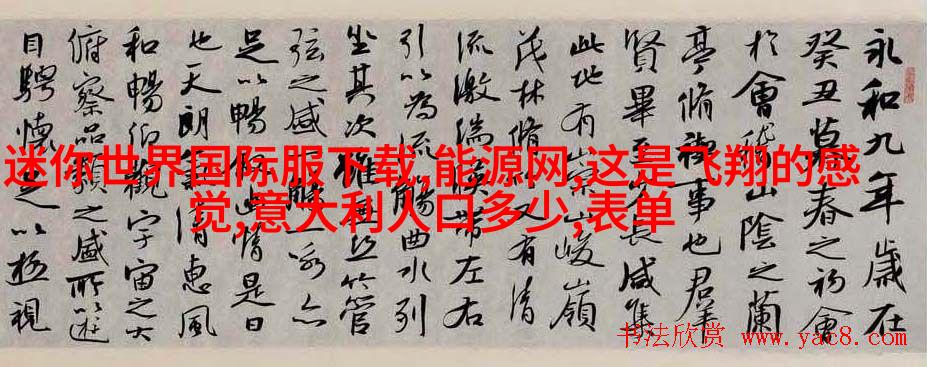 永和九年歲在
癸丑暮春之初會
於會稽山陰之蘭
亭脩禊事也群
賢畢至少長咸集
此地有崇山峻嶺
茂林脩竹又有清
流激湍映帶左右
引以為流觴曲水列
坐其次雖無絲竹管
弦之盛一觴一詠亦
足以暢敘幽情是日
也天朗氣清惠風
和暢仰觀宇宙之大
俯察品類之盛所以遊
目騁懷足以極視
迷你世界国际服下载,能源网,这是飞翔的感
觉,意大利人口多少,表单
书法欣赏 www.yac8.com